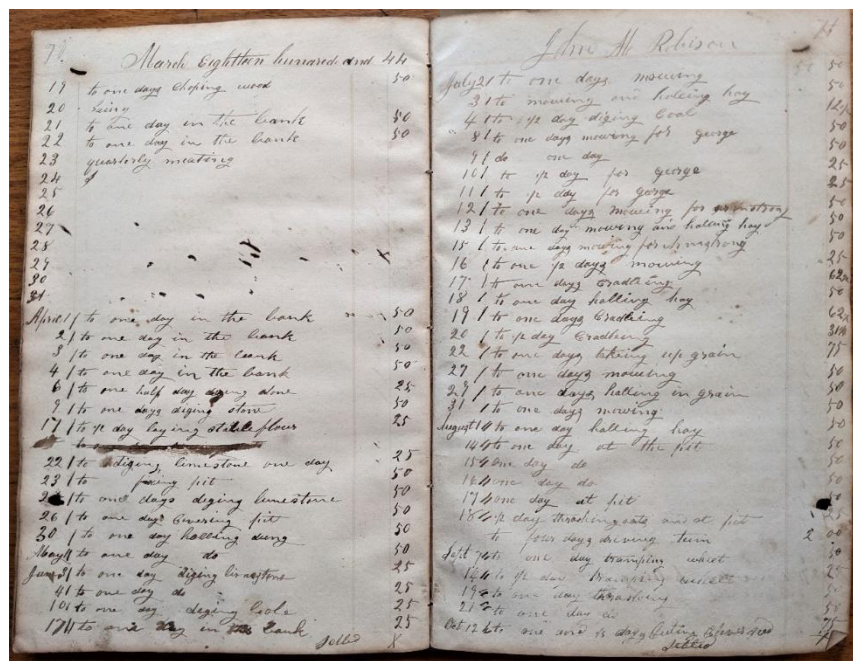 78
March Eighteen hundred and 44
19 to one days Choping wood 50
20
21 to one day in the bank 50
22 to one day in the bank 50
23 quarterly meating
24
25
26
27
28
29
30
31
April 1 to one day in the bank 50
2 to one day in the bank 50
3 to one day in the bank 50
4 to one day in the bank 50
6 to one half day diging stone 25
9 to one days diging stone 50
17 to 1/2 day laying stable flour 25
22 to diging limestone one day 25
23 to pit 50
to one days diging limestone 50
26 to one days Covering pit 50
30 to one day halling dung 50
May to one day do 50
June to one day diging limestone 25
4 to one day do 25
10 to one day diging Cole 25
17 to one day in bank 25
Setled X
John M Robison
July 2 to one days mowing 50
3 to mowing and haleing hay 50
4 to 1/2 day diging Coal
8 to one days mowing for george 50
9 do one day 50
10 to 1/2 day for george 25
11 to 1/2 day for gorge 25
12 to one days mowing for armstrong 50
13 to one day mowing and halling hay 50
15 to one days mowing for armstrong 50
16 to one 1/2 days mowing 25
17 to one days Cradleing 62
18 to one day halling hay 50
19 to one days Cradleing 62
20 to 1/2 day Cradleing 31
22 to one days takeing up grain 75
27 to one days mowing 50
29 to one days halling in grain 50
31 to one days mowing 50
August 1 to one day halling hay 50
14 to one day at the pit 50
15 one day do 50
16 one day do 50
17 one day at pit 50
18 1/2 day thrashing oats and at pit 25
to four days driving team 2 00
Sept 7 to one day tramping wheat 50
14 to 1/2 day tramping wheat 25
19 to one day thrashing 50
21 to one day do 50
Oct 12 to one and 1/2 days Cuting Clover seed 75
Setled